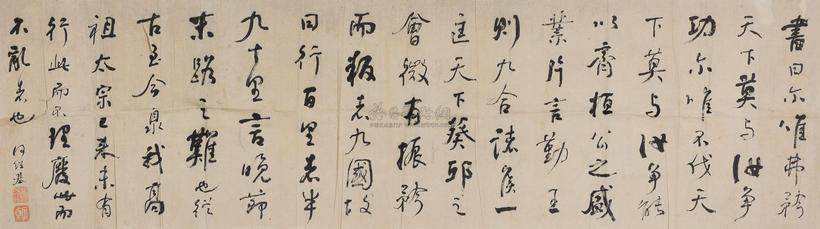 書曰尔惟弗矜
天下莫与汝争
功尔惟不伐天
下莫与汝争能
以齊桓公之盛
業片言勤王
则九合诸侯一
匡天下葵邱之
會微有振矜
而叛者九國故
曰行百里者半
九十里言晚節
末路之難也從
古至今泉我高
祖太宗已来未有
行此而不理廢此而
不亂者也 何绍基